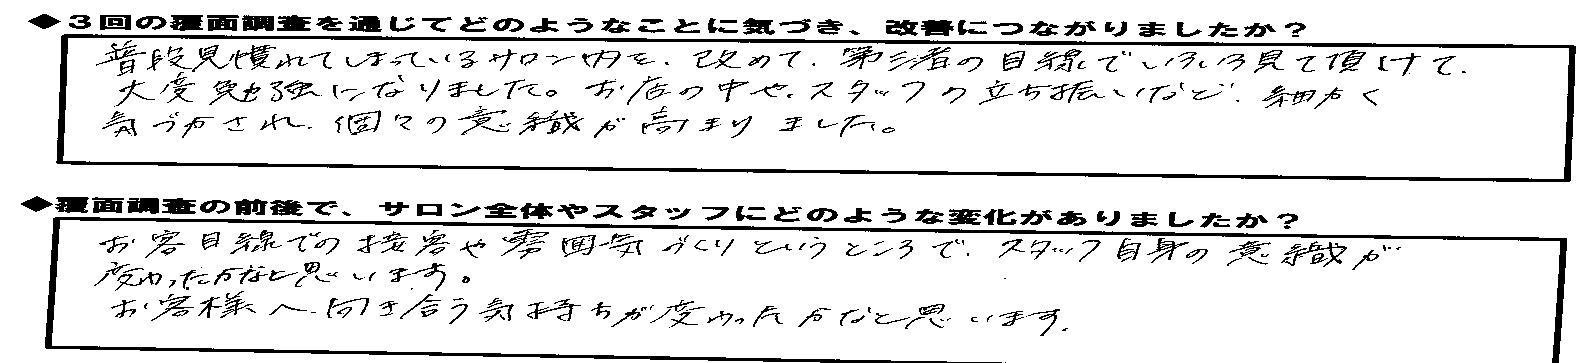 ◆３回の覆面調査を通じてどのようなことに気づき、改善につながりましたか？
普段見慣れてしまっているサロン内を、改めて、第三者の目線でいろいろ見て頂けて、
大変勉強になりました。お店の中や、スタッフの立ち振いなど、細かく
気づかされ、個々の意識が高まりました。
◆覆面調査の前後で、サロン全体やスタッフにどのような変化がありましたか？
お客目線での接客や雰囲気づくりというところで、スタッフ自身の意識が
変わったかなと思います。
お客様へ向き合う気持ちが変わったかなと思います。